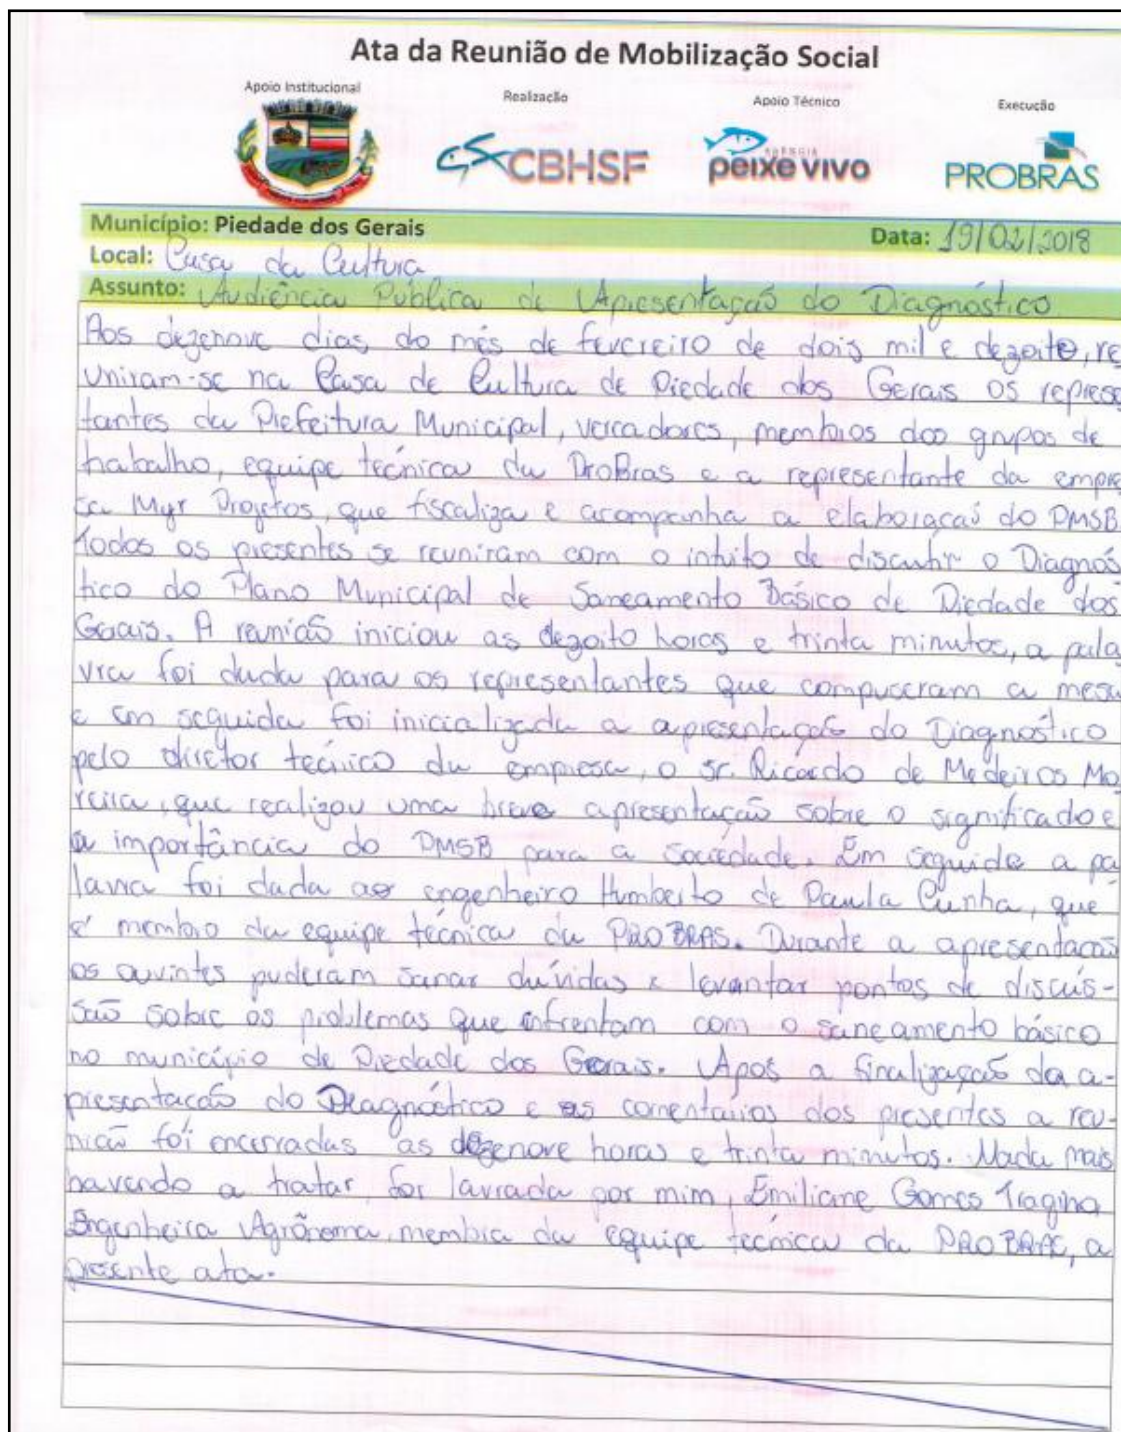 Ata da Reunião de Mobilização Social
Apoio Institucional Realização Apoio Técnico Execução
CBHSF AGÊNCIA peixe vivo PROBRAS
Município: Piedade dos Gerais Data: 19/02/2018
Local: Casa da Cultura
Assunto: Audiência Pública de Apresentação do Diagnóstico
Aos dezenove dias do mês de fevereiro de dois mil e dezoito, re
uniram-se na Casa de Cultura de Piedade dos Gerais os represe
tantes da Prefeitura Municipal, vereadores, membros dos grupos de
trabalho, equipe técnica da ProBras e a representante da empre
sa Myr Projetos, que fiscaliza e acompanha a elaboração do PMSB.
Todos os presentes se reuniram com o intuito de discutir o Diagnós
tico do Plano Municipal de Saneamento Básico de Piedade dos
Gerais. A reunião iniciou as dezoito horas e trinta minutos, a pala
vra foi dada para os representantes que compuseram a mesa
e em seguida foi inicializada a apresentação do Diagnóstico
pelo diretor técnico da empresa, o sr. Ricardo de Medeiros Mo
reira, que realizou uma breve apresentação sobre o significado e
a importância do PMSB para a sociedade. Em seguida a pa
lavra foi dada ao engenheiro Humberto de Paula Cunha, que
é membro da equipe técnica da PROBRAS. Durante a apresentação
os ouvintes puderam sanar dúvidas e levantar pontos de discus-
são sobre os problemas que enfrentam com o saneamento básico
no município de Piedade dos Gerais. Após a finalização da a-
presentação do Diagnóstico e os comentários dos presentes a reu-
nião foi encerradas as dezenove horas e trinta minutos. Nada mais
havendo a tratar, foi lavrada por mim, Emiliane Gomes
Engenheira Agrônoma, membra da equipe técnica da PROBRAS, a
presente ata.